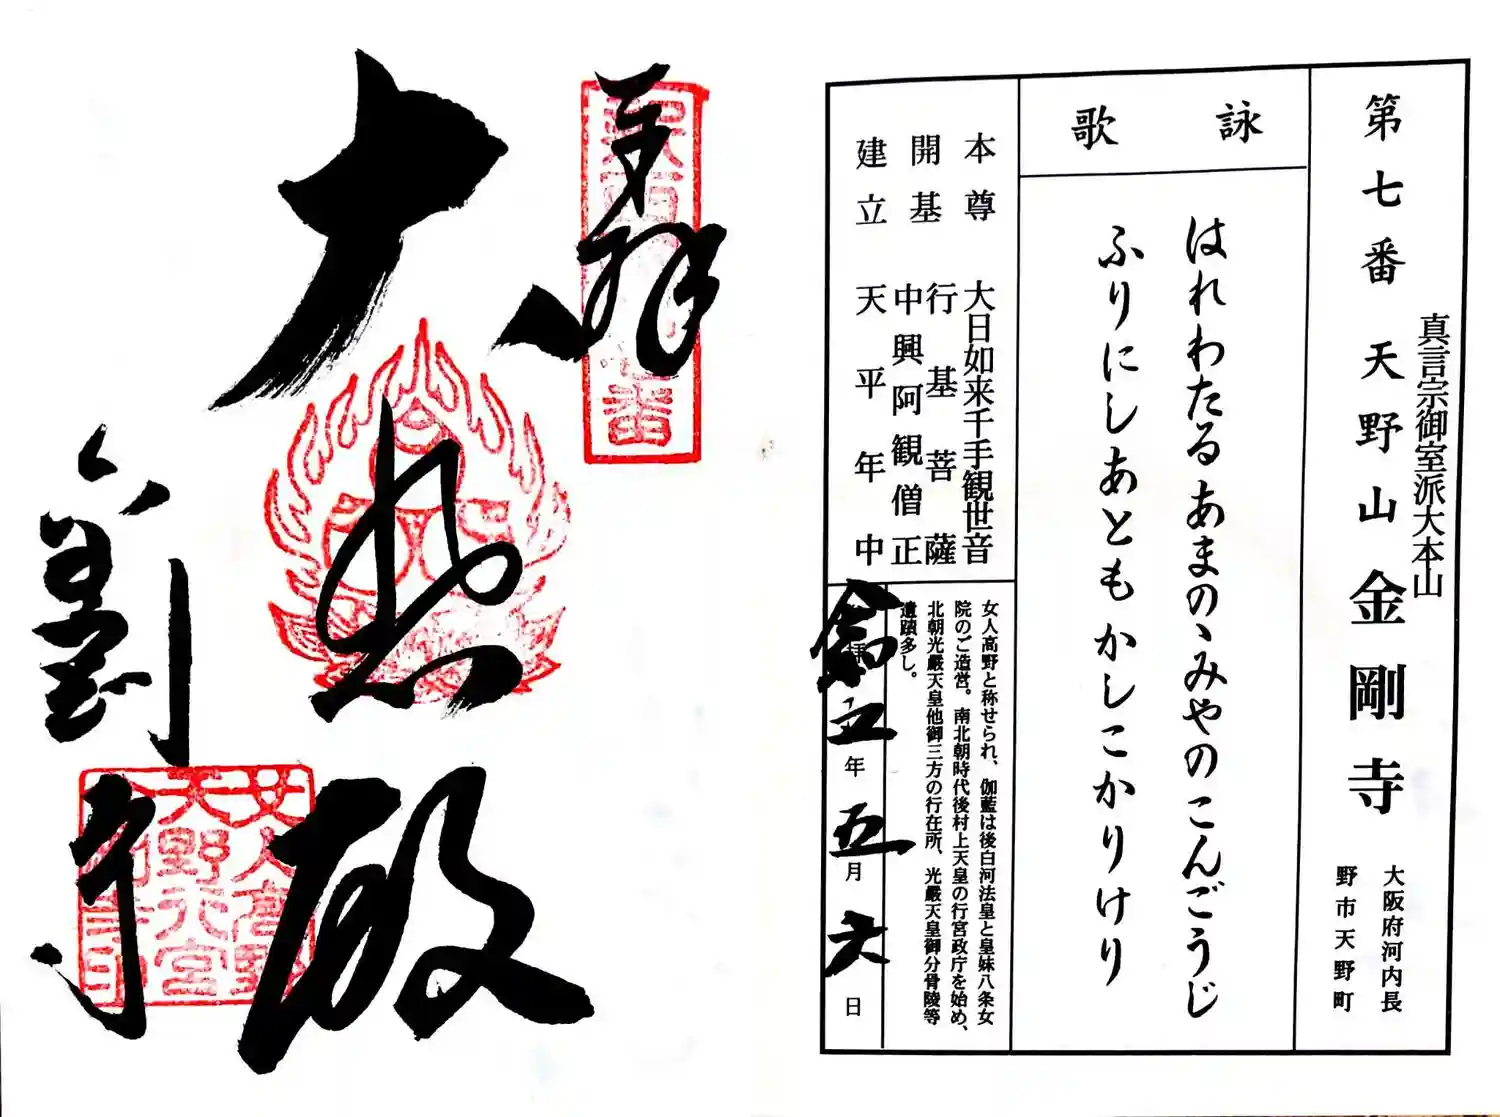 第七番 天野山 金剛寺
真言宗御室派大本山
大阪府河内長
野市天野町
詠歌
はれわたるあまのゝみやのこんごうじ
ふりにしあともかしこかりけり
本尊 大日如来千手観世音
開基 行基菩薩
中興阿観僧正
建立 天平年中
女人高野と称せられ、伽藍は後白河法皇と皇妹八条女
院のご造営。南北朝時代後村上天皇の行宮政庁を始め、
北朝光厳天皇他御三方の行在所、光厳天皇御分骨陵等
遺蹟多し。
五年五月六日
奉拝
大悲殿
金剛寺
女人高野
天野行宮
金剛寺印